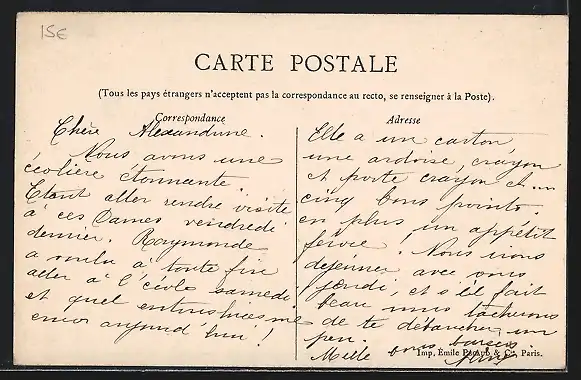 15€
CARTE POSTALE
(Tous les pays étrangers n'acceptent pas la correspondance au recto, se renseigner à la Poste).
Correspondance
Chère Alexandrine.
Nous avons une
écolière étonnante.
Etant aller rendre visite
à ces Dames vendredi
dernier. Raymonde
a voulu à toute fin
aller à l'école samedi
et quel enthousiasme
encor aujourd'hui !
Adresse
Elle a un carton
une ardoise, crayon
et porte crayon et
cinq bons points.
en plus un appétit
féroce ! Nous irons
déjeuner avec vous
jeudi, et s'il fait
beau nous tâcherons
de te débaucher un
peu.
Mille bons baisers
Imp. Émile Pécaud & Cie, Paris.